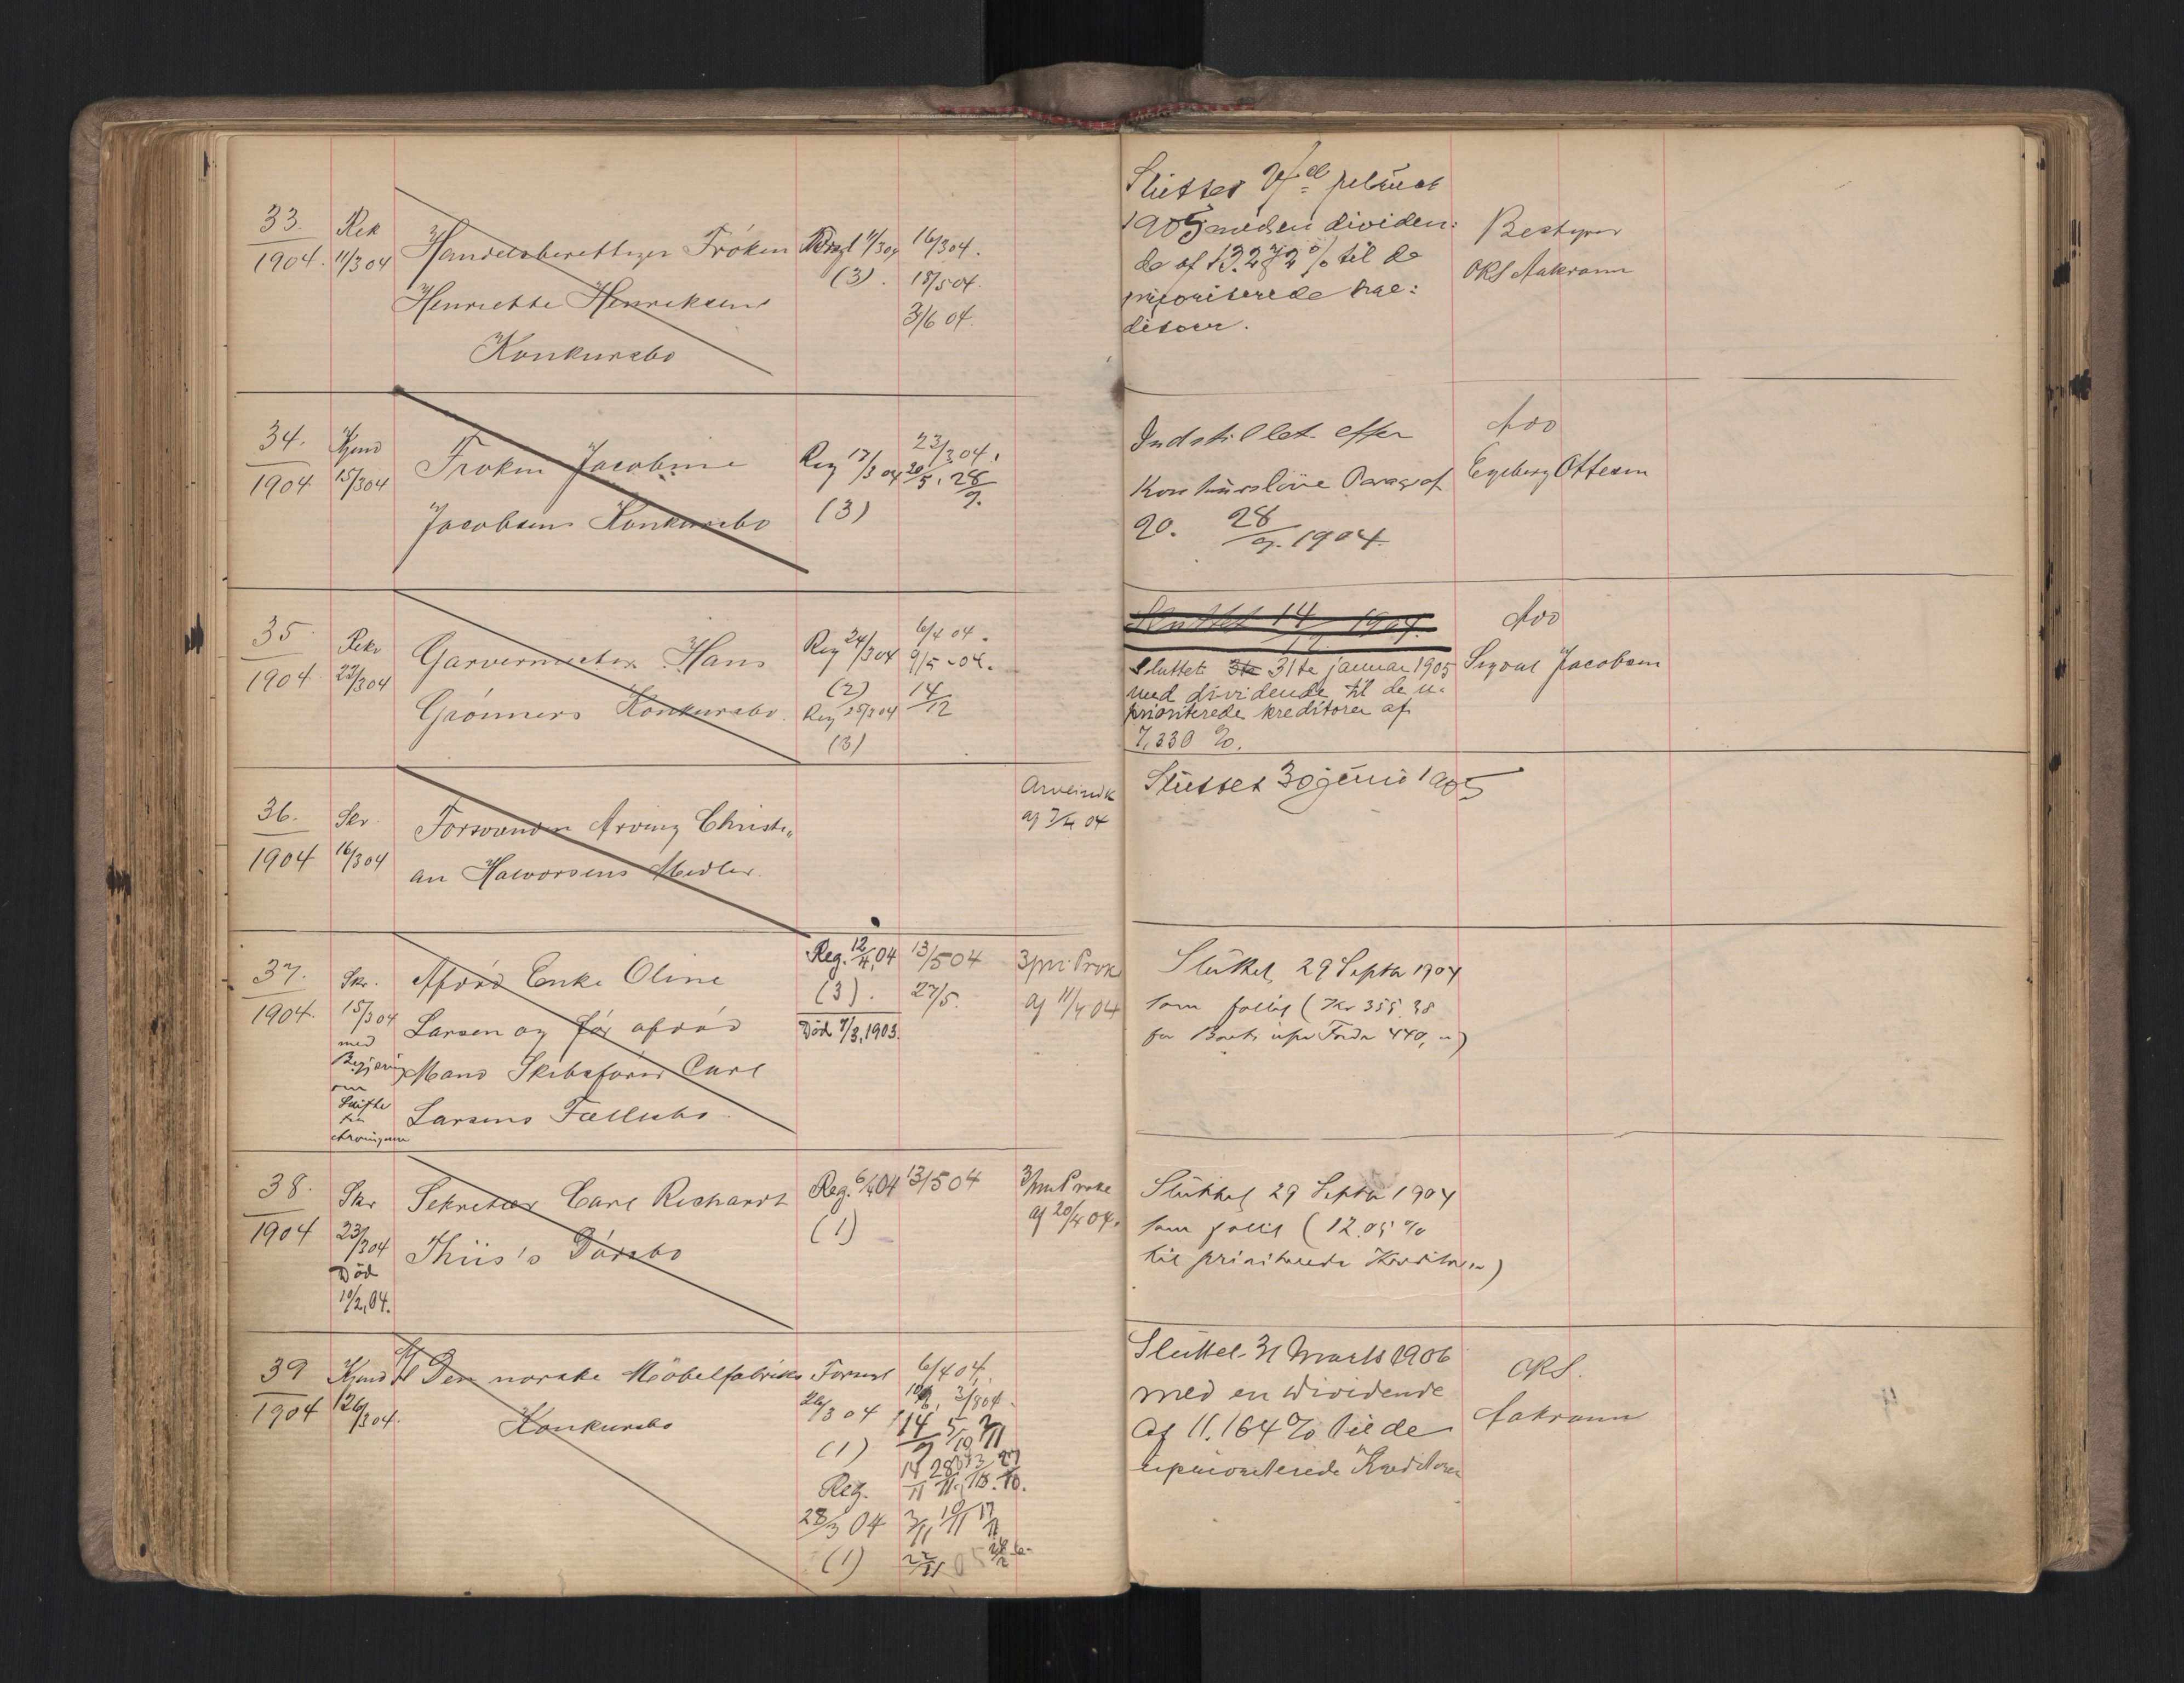 33. Rek Handelsberettiget Frøken 16/3 04.
1904. 11/3 04 (3). 18/5 04.
Henriette Henriksens 3/6 04.
Konkursbo
Sluttet
1905 med en dividen-
de af 13.272 % til de
priorit erede kre-
ditorer.
Bestyrer
ORS Aakrann
34. Kjend Frøken Jacobine Reg 17/3 04 23/3 04.
1904 15/3 04 20/5. 28/9.
Jacobsens Konkursbo (3)
Indstillet efter
Konkurslovens Paragraf
90. 28/9. 1904.
Adv
Egeberg Ottesen
35. Rekv Garvermester Hans Reg 24/3 04 6/4 04.
1904 23/3 04 (2) 9/5 - 04.
Grønners Konkursbo. Reg 25/3 04 14/12
(3)
Sluttet 14/12 1904.
Sluttet 31te januar 1905
med dividende til de u-
prioriterede kreditorer af
7,330 %.
Adv
Sigval Jacobsen
36. Skr Forsvunden Arving Christi-
1904 16/3 04 an Halvorsens Midler.
af 7/4 04
Sluttet 30 juni 1905
37. Skr. Afdød Enke Oline Reg. 12/4, 04 13/5 04 3 mdr Prok
1904. 15/3 04 (3). 27/5. af 11/4 04
med Larsen og før afdød Død 7/3, 1903.
Begjæring Mand Skibsfører Carl
om
Skifte Larsens Fællesbo
fra
Arvingerne
Sluttet 29 Septbr 1904
som fallit (Kr 355.38
38. Skr Sekretær Carl Richardt Reg. 6/4 04 13/5 04 3 mdr Prokl
1904 23/3 04 (1) af 20/4 04.
Død Thiis's Dødsbo
10/2, 04.
Sluttet 29 Septbr 1904
som fallit (12.05 %
til prioriterede Kreditorer)
39 Kjend A/S Den norske Möbelfabriks Forrest 6/4 04.
1904 26/3 04. Konkursbo 26/3 04 3/8 04.
(1) 14/9 5/10 2/11
Reg. 14/11 28/11.
28/3 04 3/11 10/11 17/11
(1) 22/11 05
Sluttet 31 Marts 1906
med en dividende
af 11.164 % til de
uprioriterede Kreditorer
ORS.
Aakrann